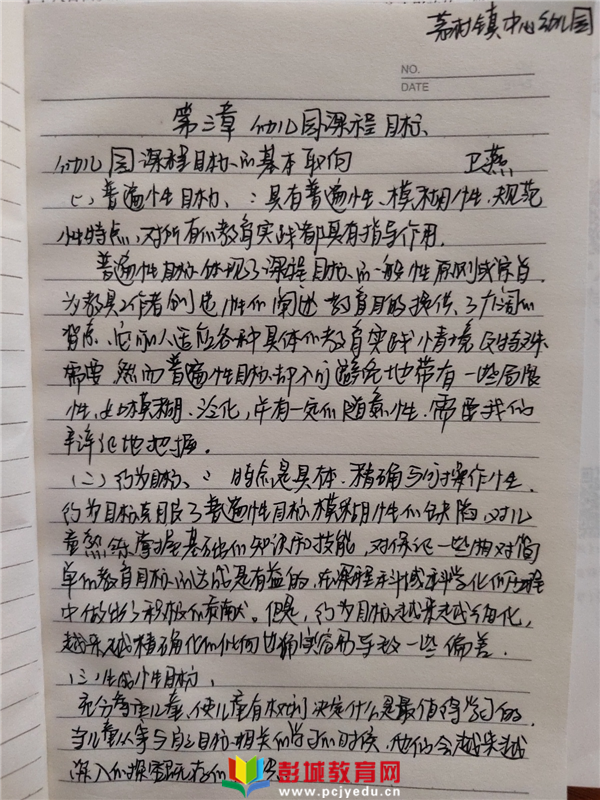 茗村镇中心幼儿园
NO.
DATE
第三章 幼儿园课程目标
幼儿园课程目标的基本取向 卫燕
(一)普遍性目标：具有普遍性、模糊性、规范
性特点，对所有的教育实践都具有指导作用。
普遍性目标体现了课程目标的一般性原则或宗旨，
为教具工作者创造性的阐述教育目的提供了广阔的
背景，它可以适应各种具体的教育实践情境及特殊
需要。然而普遍性目标却不可避免地带有一些局限
性，如模糊、泛化，含有一定的随意性，需要我们
辛辩证地把握。
(二)行为目标： 特点是具体、精确与可操作性。
行为目标克服了普遍性目标模糊性的缺陷，对儿
童熟练掌握基础的知识和技能，对保证一些相对简
单的教育目标的达成是有益的，在课程科域科学化的历程
中做出了积极的贡献。但是，行为目标越来越分化，
越来越精确化的倾向也确实容易导致一些偏差。
(三)生成性目标：
充分尊重儿童，使儿童有权利决定什么是最值得学习的。
当儿童从事与自己目标相关的学习的时候，他们会越来越
深入的探究既存的
彭城教育网
www.pcjyedu.cn